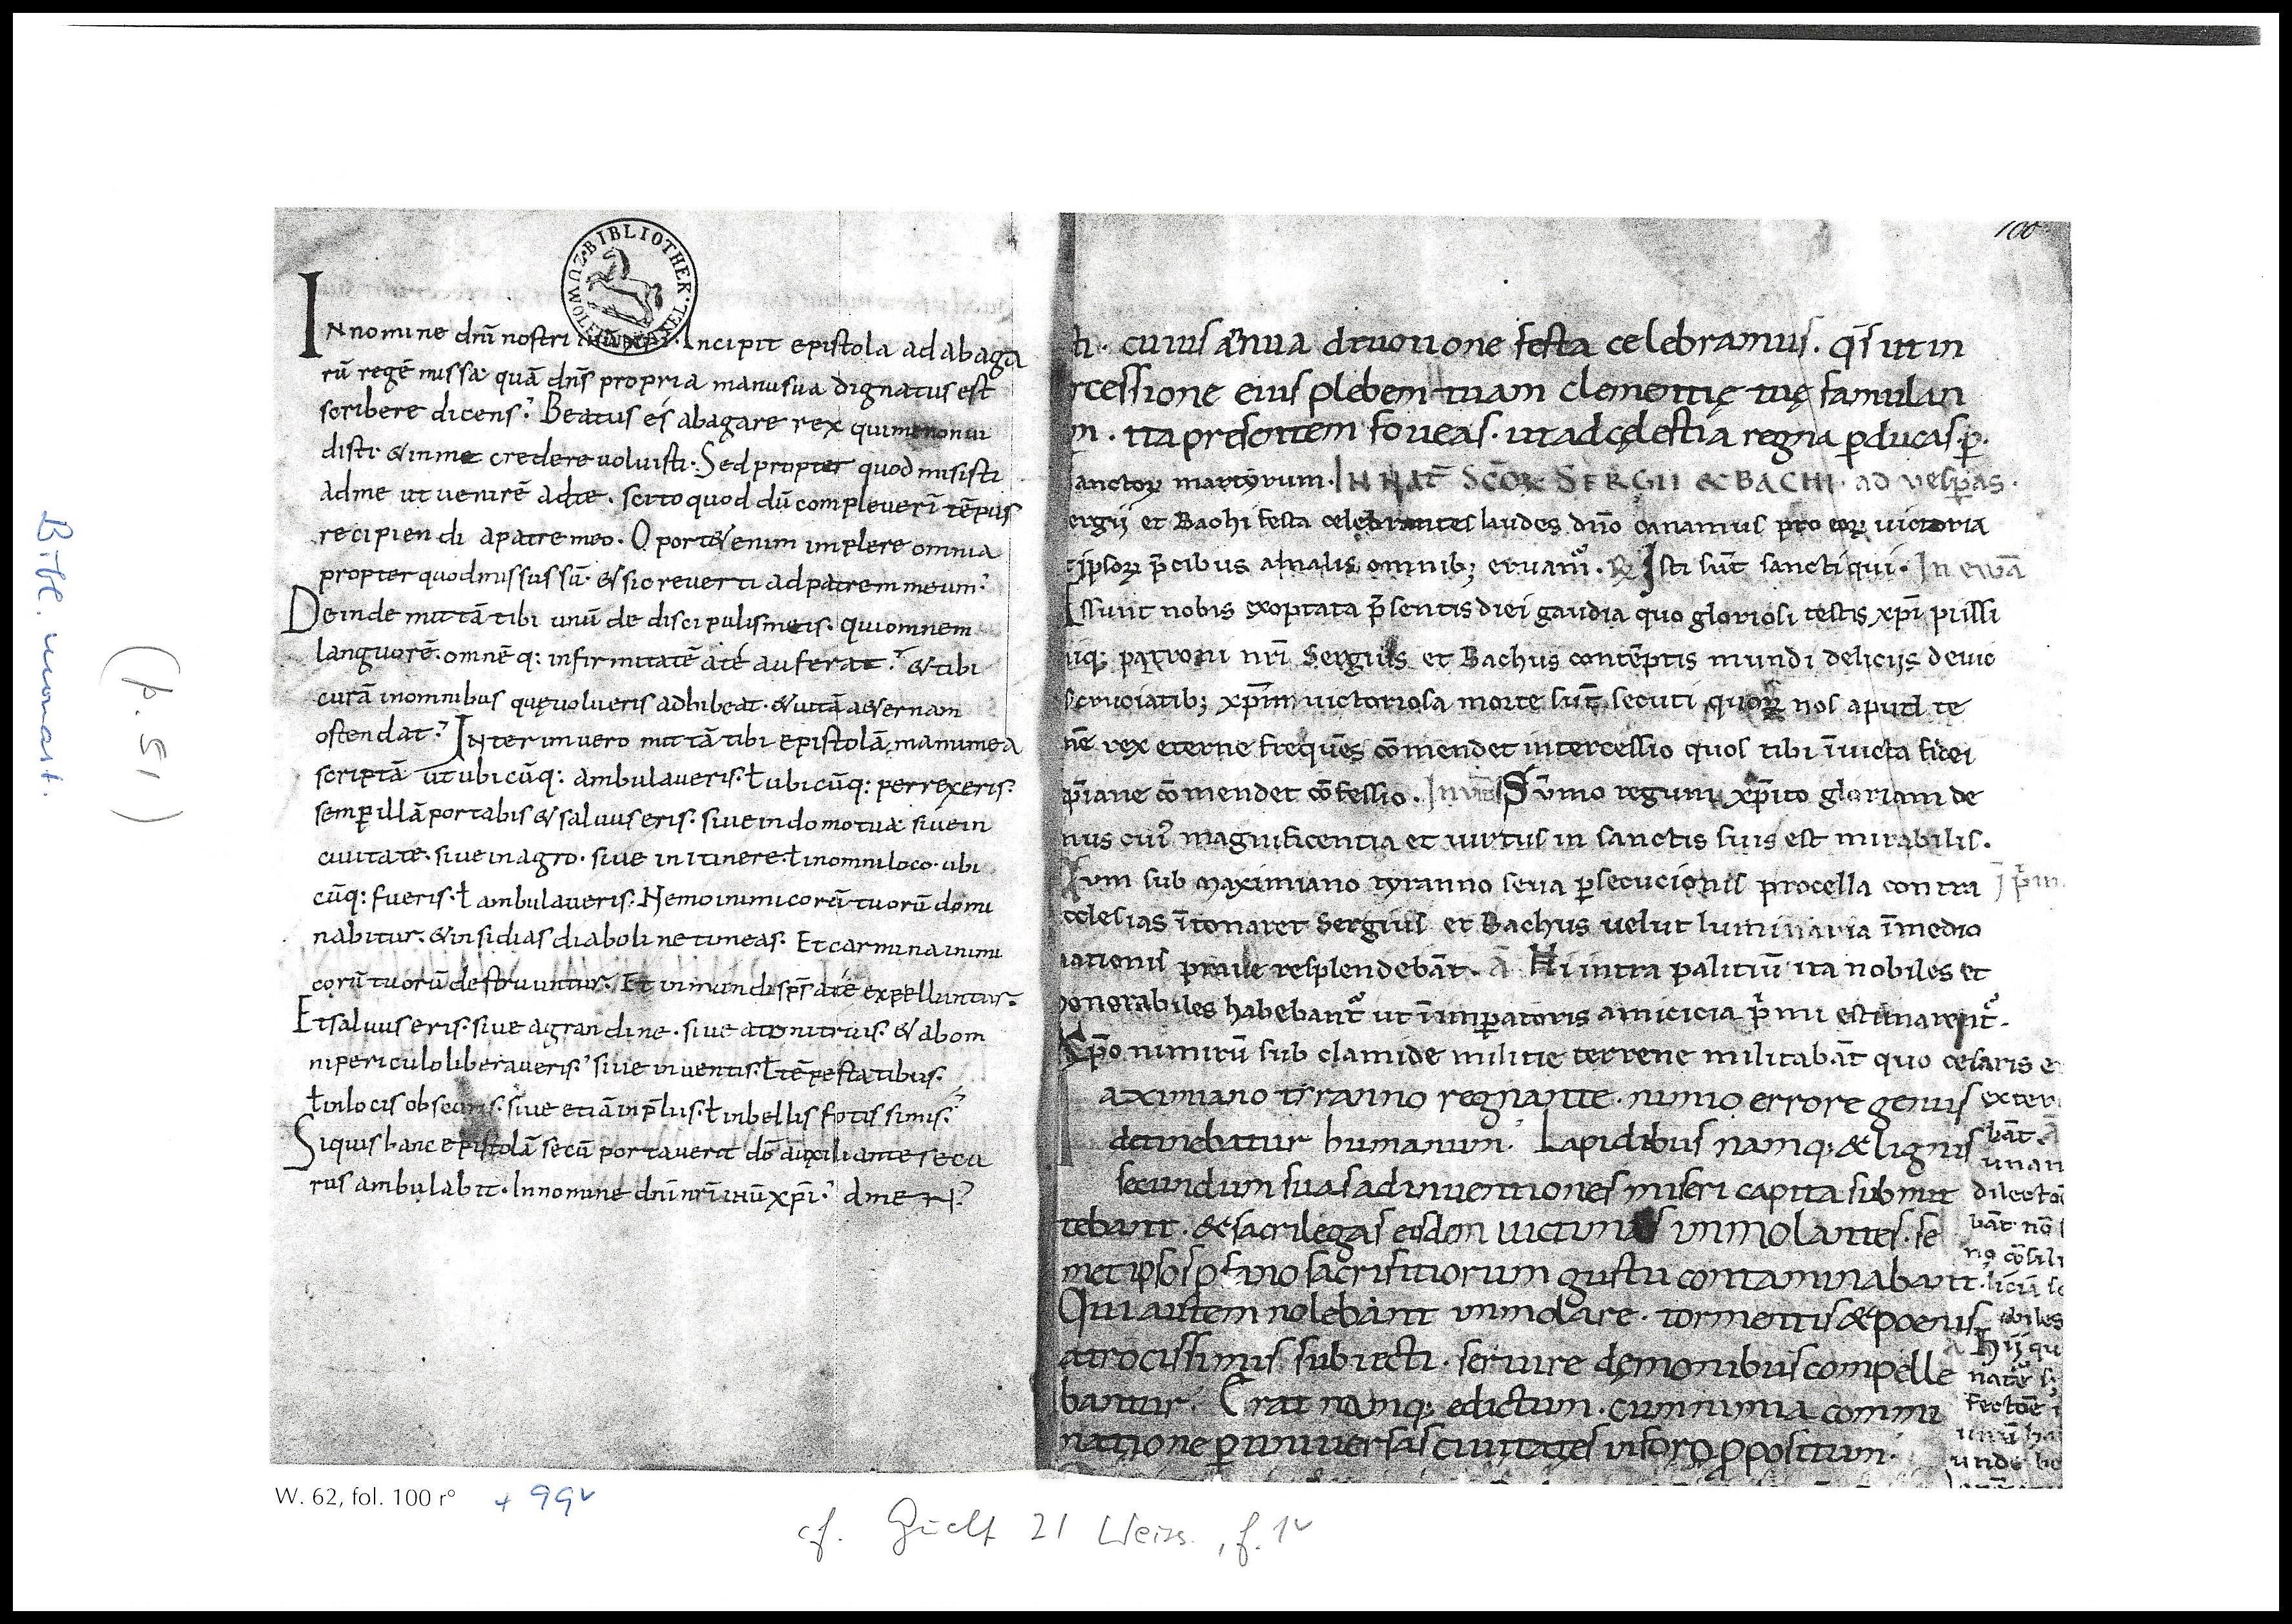 100
BIBLIOTHEK
In nomine dn̄i nostri ihū xp̄i. Incipit epistola ad abaga
rū regē missa quā dn̄s propria manu sua dignatus est
scribere dicens. Beatus es abagare rex qui me non ui
disti. & in me credere uoluisti. Sed propter quod misisti
ad me ut uenirē ad te. scito quod dū compleuerī tēpus
recipiendi a patre meo. Oport& enim implere omnia
propter quod missus sū. & sic reuerti ad patrem meum.
Deinde mittā tibi unū de discipulis meis. qui omnem
languorē. omnēq: infirmitatē a te auferat. & tibi
curā in omnibus quę uolueris adhibeat. & uitā a&ernam
ostendat. Interim uero mittā tibi epistolā manu mea
scriptā ut ubicūq: ambulaueris. ł ubicūq: perrexeris.
semꝑ illā portabis & saluus eris. siue in domo tua siue in
ciuitate. siue in agro. siue in itinere. ł in omni loco. ubi
cūq: fueris. ł ambulaueris. Nemo inimicorū tuorū domi
nabitur. & insidias diaboli ne timeas. Et carmina inimi
corū tuorū destruuntur. Et inmundi sp̄s a te expelluntur.
Et saluus eris. siue a grandine. siue a tonitruis. & ab om
ni periculo liberaueris. siue in uentis. ł tēpestatibus.
ł in locis obscuris. siue etiā in p̄lus. ł in bellis fotissimis.
Si quis hanc epistolā secū portauerit dō auxiliante secu
rus ambulabit. In nomine dn̄i nr̄i ihū xp̄i. ame N.
ti. cuius annua deuotione festa celebramus. q̄s ut in
rcessione eius plebem tuam clementię tuę famulan
m. ita presentem foueas. ut ad cęlestia regna ꝑducas. ꝑ.
anctoꝝ martyrum. IN NAT̄ SCŌꝜ SERGII & BACHI. ad uesꝑas.
ergii et Bachi festa celebrantes laudes dn̄o canamus pro eoꝝ uictoria
ipsoꝝ p̄cibus a malis omnib; eruam̉. ℟ Isti sūt sancti qui. In ewā
ssunt nobis exoptata p̄sentis diei gaudia quo gloriosi testis xp̄i piissi
iq; patroni nr̄i Sergius et Bachus contēptis mundi deliciis
cruciatib; xp̄m uictoriosa morte sūt secuti quoꝝ nos apud te
nē rex eterne frequēs cōmendet intercessio quos tibi īuicta fidei
p̄iane cōmendet cōfessio. Inuit Sūmo regum xp̄ito gloriam de
nus cuỉ magnificentia et uirtus in sanctis suis est mirabilis.
um sub maximiano tyranno seua ꝑsecucionis procella contra
cclesias ītonaret Sergius et Bachus uelut luminaria ī medio
nationis praue resplendebāt. A Hi intra palitiū ita nobiles et
onorabiles habebant̉ ut ī imꝑatoris amicicia p̄mi estimarent̉.
Xp̄o nimirū sub clamide militie terrene militabāt quo cesaris e
aximiano tiranno regnante. nimio errore genus
detinebatur humanum. Lapidibus namq; & lignis
secundum suas adinuentiones miseri capita submit
tebant. & sacrilegas eisdem uictimas immolantes. se
met ipsos ꝓfano sacrifitiorum gustu contaminabant.
Qui autem nolebant immolare. tormentis & poenis
atrocissimis subiecti. seruire demonibus compelle
bantur. Erat namq; edictum. cum nimia commi
natione ꝑ uniuersas ciuitates in foro ꝓpositum.
exter
bāt. A
unan
dilecto
bāt nō
no cōsili
liciū
abiles
Hij qu
fectōe
unde
W. 62, fol. 100 r° + 99v
cf. Guelf 21 Weiss., f. 1v
Bibl. monast.
(p. 51)